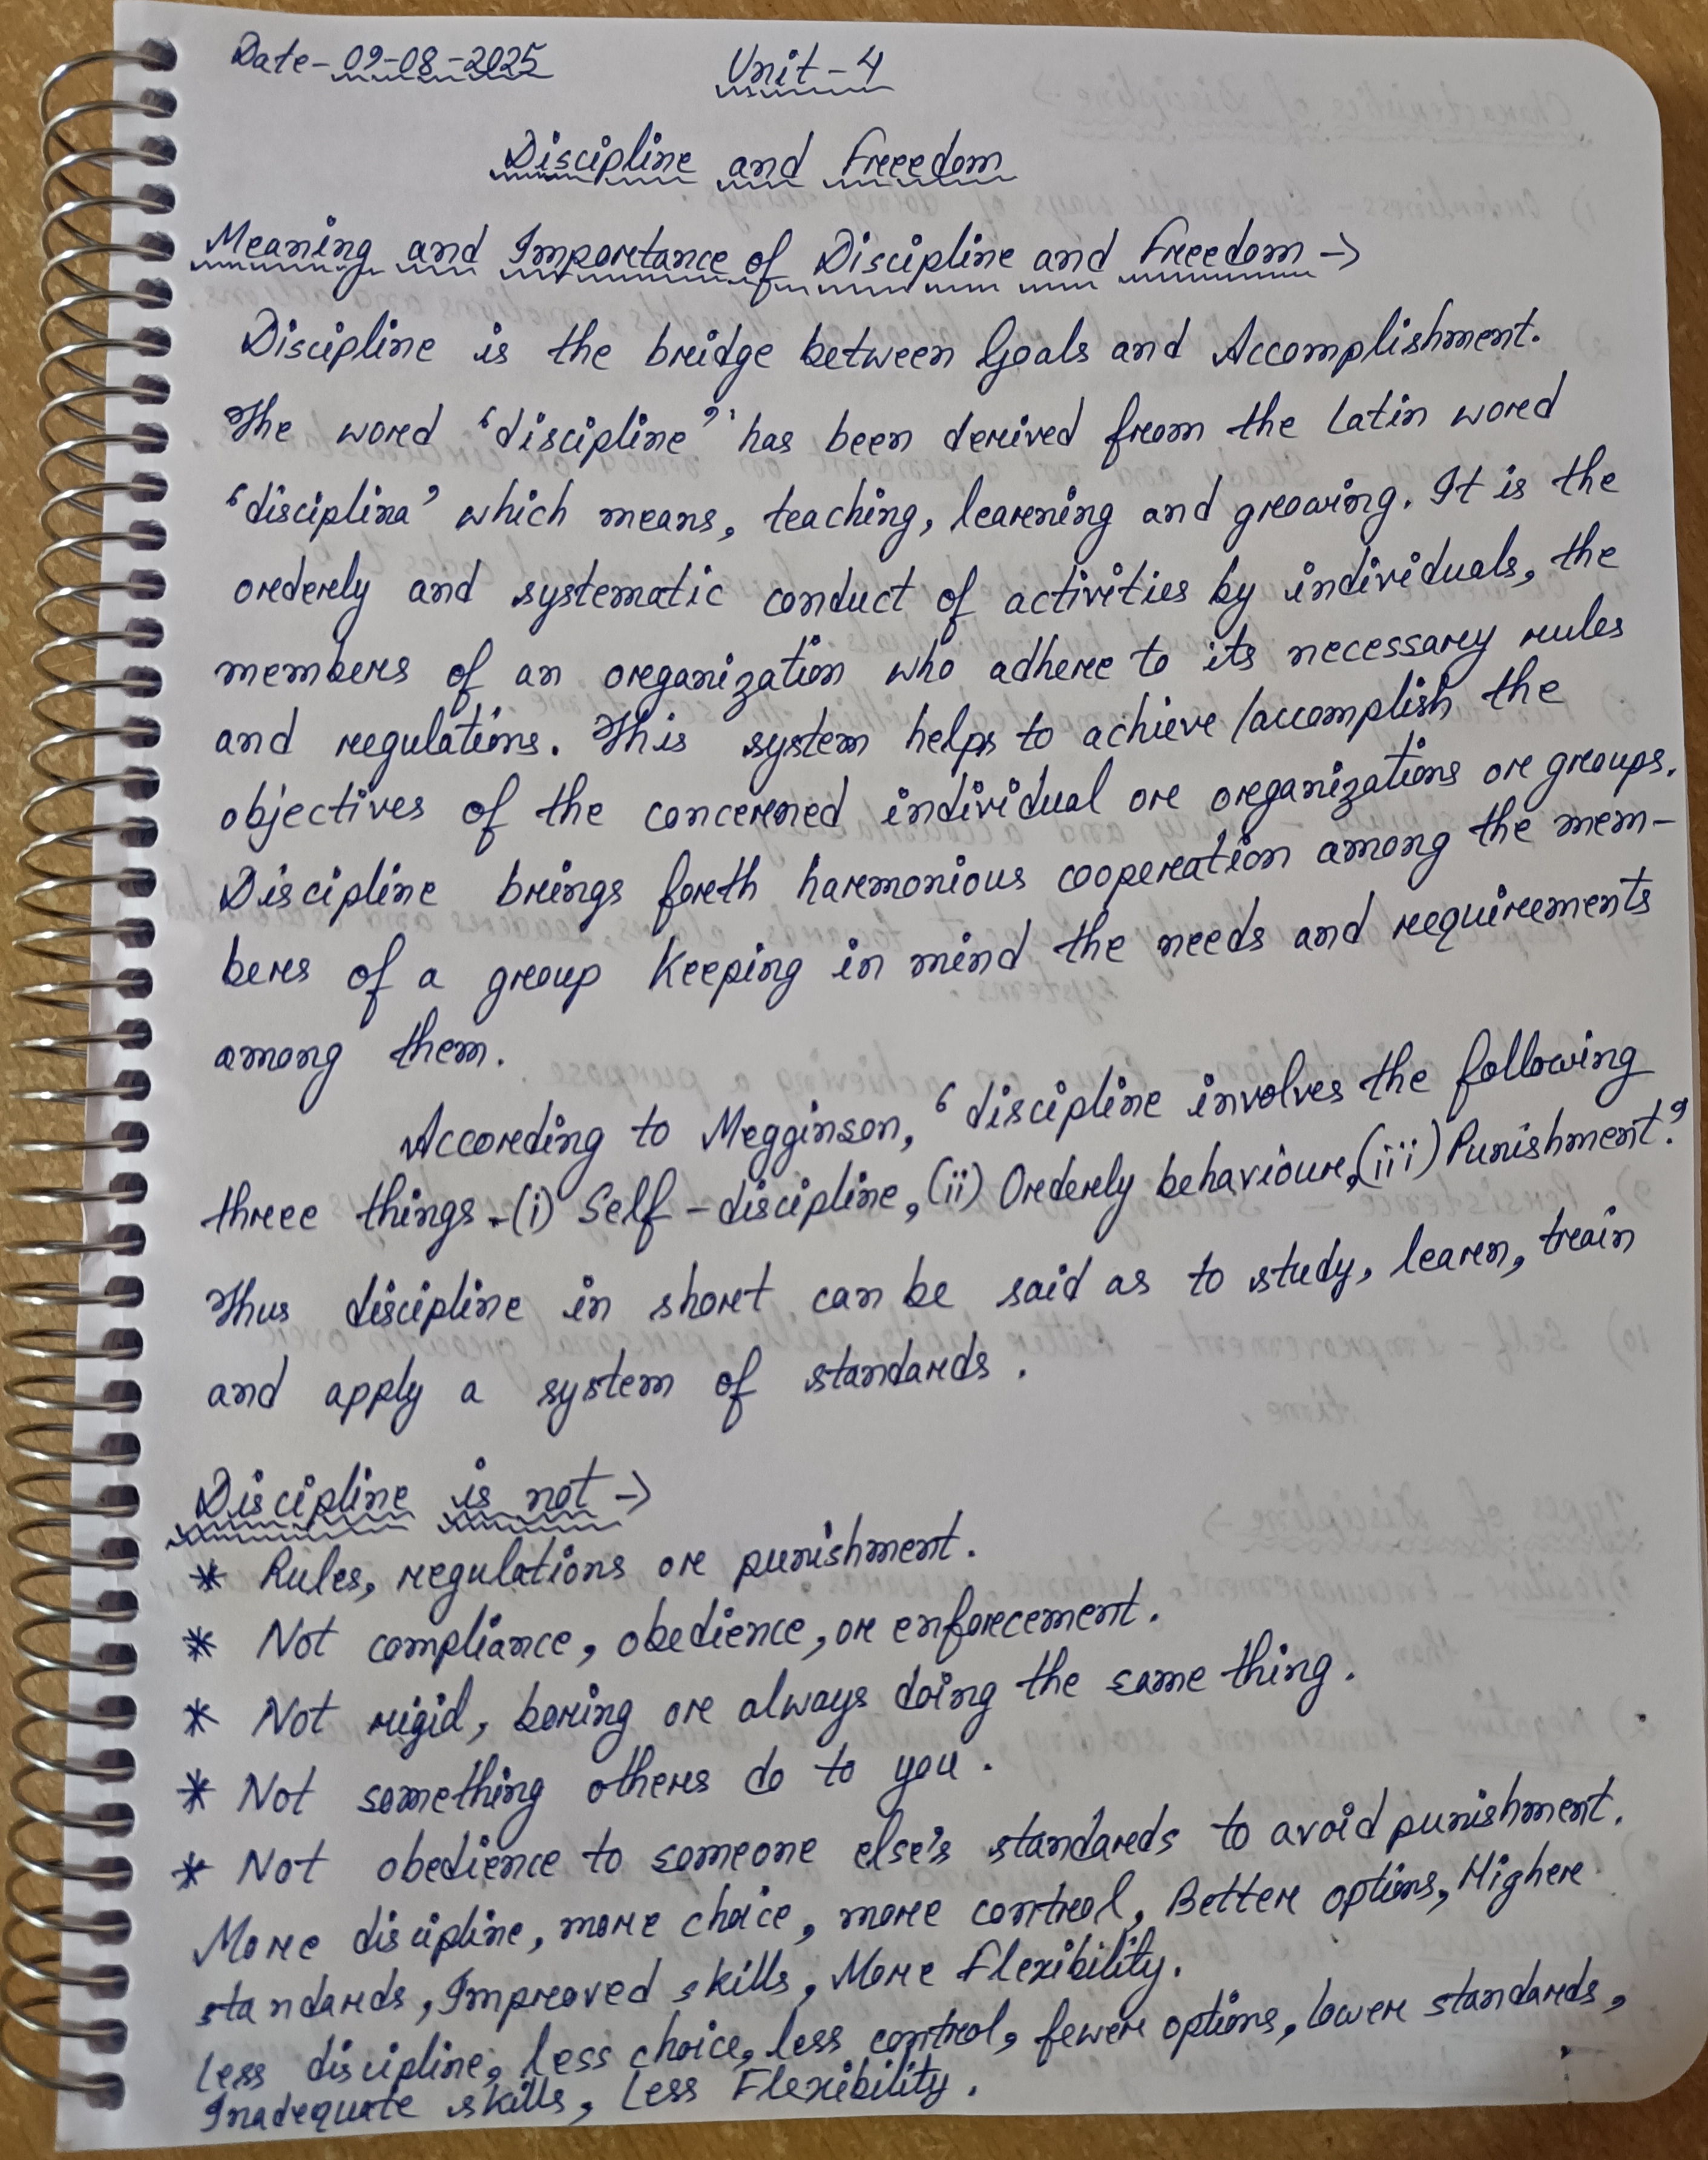 Date - 09-08-2025
Unit - 4
Discipline and Freedom
Meaning and Importance of Discipline and Freedom ->
Discipline is the bridge between Goals and Accomplishment.
The word 'discipline' has been derived from the Latin word
'disciplina' which means, teaching, learning and growing. It is the
orderly and systematic conduct of activities by individuals, the
members of an organization who adhere to its necessary rules
and regulations. This system helps to achieve /accomplish the
objectives of the concerned individual or organizations or groups.
Discipline brings forth harmonious cooperation among the mem-
bers of a group keeping in mind the needs and requirements
among them.
According to Megginson, 'discipline involves the following
three things - (i) Self - discipline, (ii) Orderly behaviour, (iii) Punishment.'
Thus discipline in short can be said as to study, learn, train
and apply a system of standards.
Discipline is not ->
* Rules, regulations or punishment.
* Not compliance, obedience, or enforcement.
* Not rigid, boring or always doing the same thing.
* Not something others do to you.
* Not obedience to someone else's standards to avoid punishment.
More discipline, more choice, more control, Better options, Higher
standards, Improved skills, More Flexibility.
Less discipline, less choice, less control, fewer options, lower standards,
Inadequate skills, Less Flexibility.